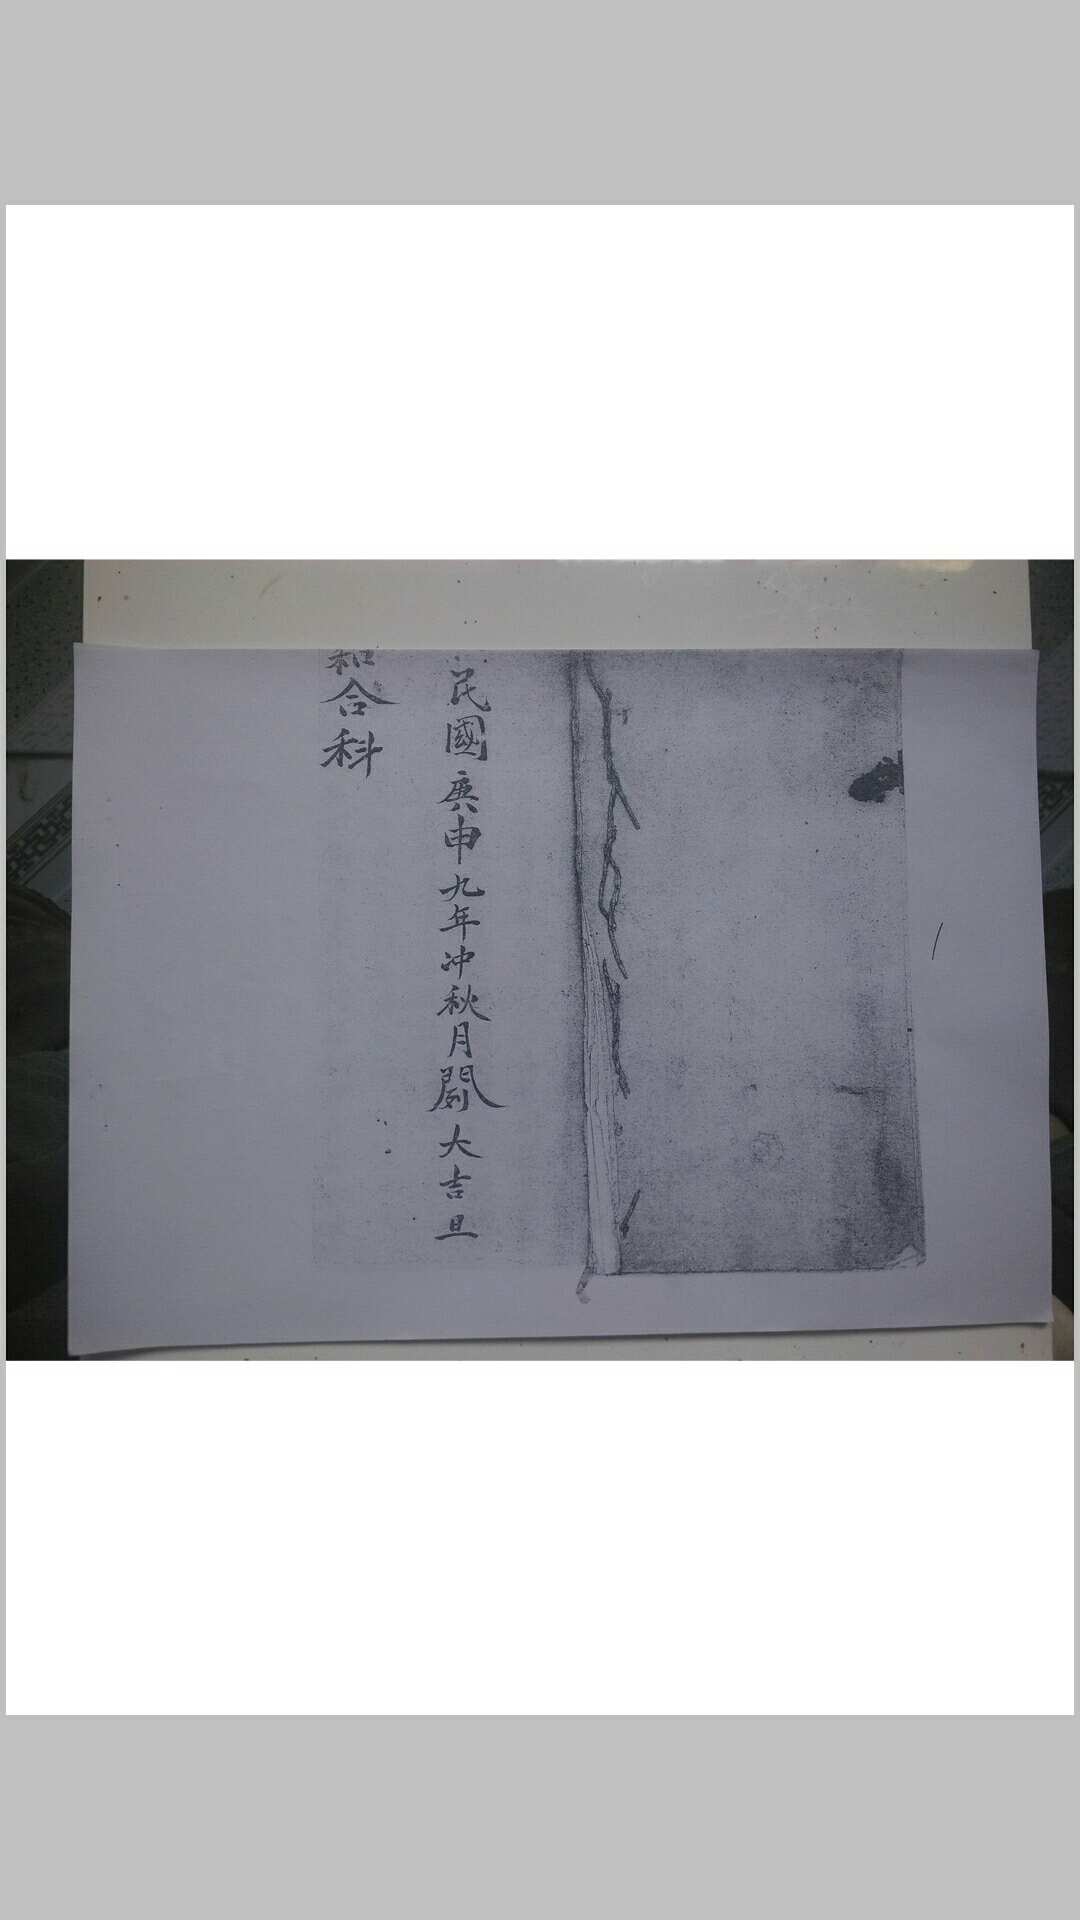 民國庚申九年冲秋月閼大吉旦
和合科